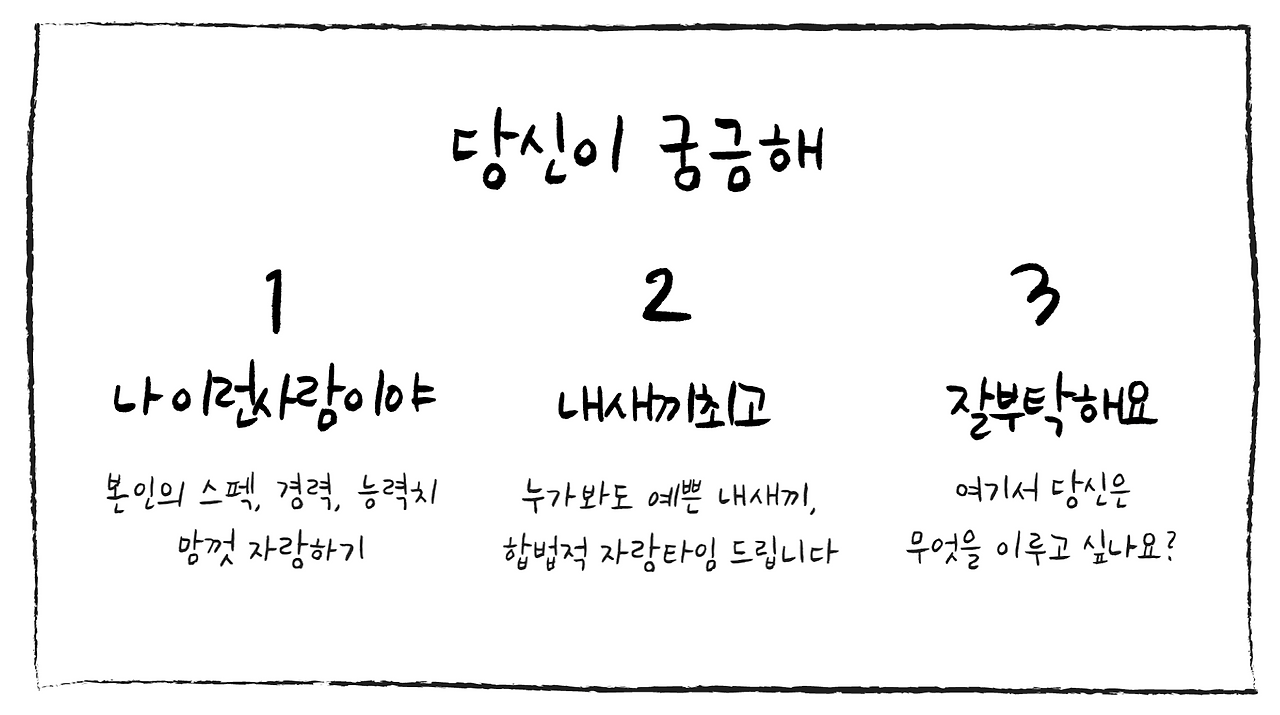 당신이 궁금해
1
나 이런사람이야
본인의 스펙, 경력, 능력치
맘껏 자랑하기
2
내새끼최고
누가봐도 예쁜 내새끼,
합법적 자랑타임 드립니다
3
잘부탁해요
여기서 당신은
무엇을 이루고 싶나요?